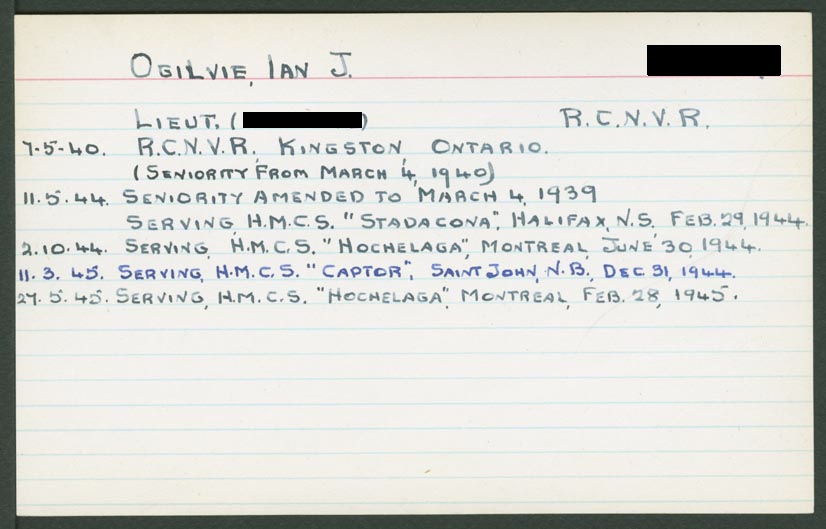 OGILVIE, IAN J.
LIEUT. ( ) R.C.N.V.R.
7-5-40. R.C.N.V.R. KINGSTON, ONTARIO.
(SENIORITY FROM MARCH 4, 1940)
11.5.44. SENIORITY AMENDED TO MARCH 4, 1939
SERVING, H.M.C.S. "STADACONA", HALIFAX, N.S., FEB. 29, 1944.
2.10.44. SERVING, H.M.C.S. "HOCHELAGA", MONTREAL, JUNE 30, 1944.
11.3.45. SERVING, H.M.C.S. "CAPTOR", SAINT JOHN, N.B., DEC 31, 1944.
27.5.45. SERVING, H.M.C.S. "HOCHELAGA", MONTREAL, FEB. 28, 1945.